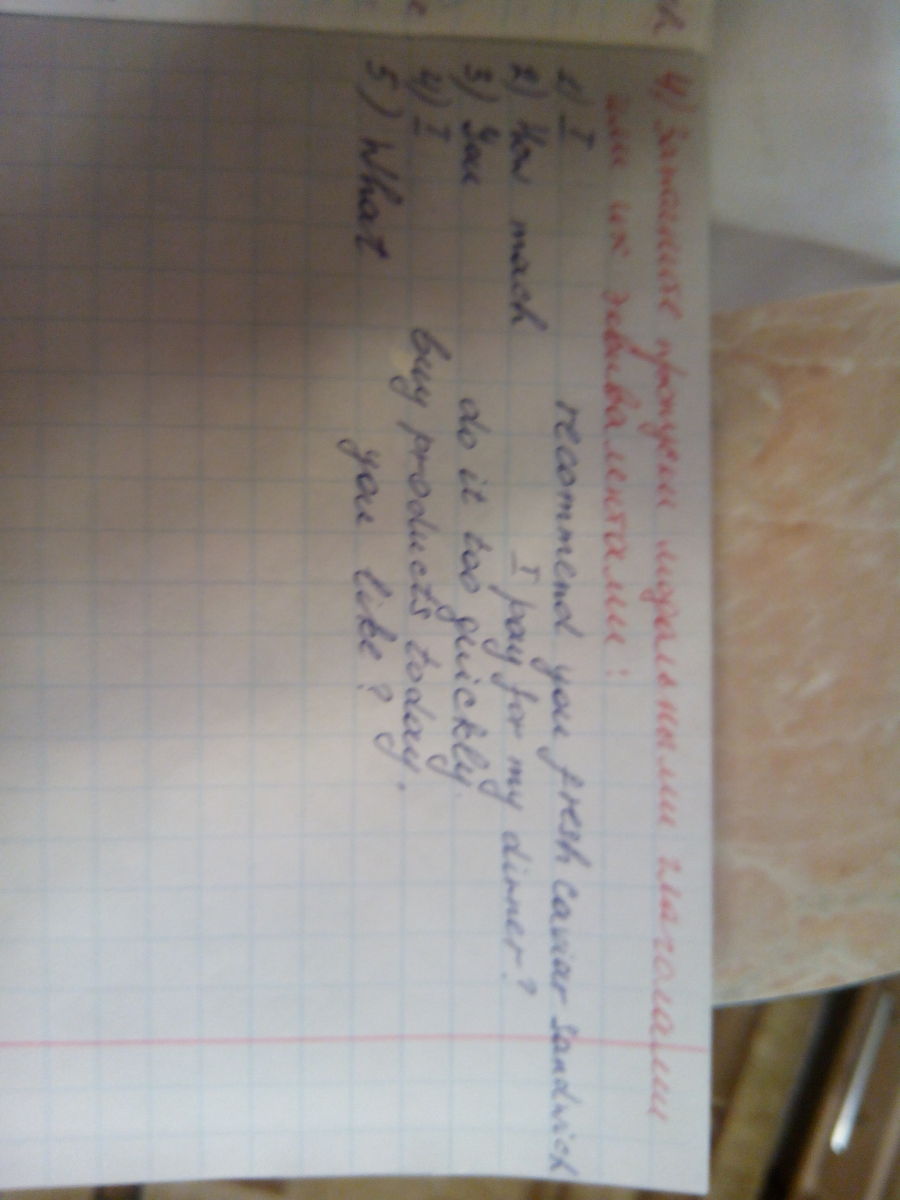 4) Запомните пропуски модальными глаголами
или их эквивалентами:
1) I recommend you fresh caviar sandwich
2) How mach I pay for my dinner?
3) You do it too quickly.
4) I buy products today.
5) What you like?